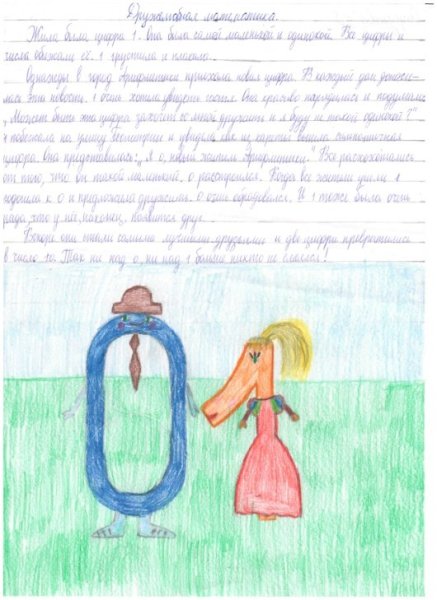 Дружелюбная математика.
Жила была цифра 1. Она была самой маленькой и одинокой. Все цифры и
числа обижали её. 1 грустила и плакала.
Однажды в город Арифметики приехала новая цифра. В каждый дом донес-
лась эта новость. 1 очень хотела увидеть гостя. Она красиво нарядилась и подумала:
„Может быть эта цифра захочет со мной дружить и я буду не такой одинокой?"
1 побежала на улицу Геометрии и увидела как из кареты вышла симпатичная
цифра. Она представилась: „Я 0, новый житель Арифметики." Все расхохотались
от того, что он такой маленький, 0 расстроился. Когда все жители ушли 1
подошла к 0 и предложила дружить. 0 очень обрадовался. И 1 тоже была очень
рада, что у неё, наконец, появится друг.
Вскоре они стали самыми лучшими друзьями и две цифры превратились
в число 10. Так ни над 0, ни над 1 больше никто не смеялся!